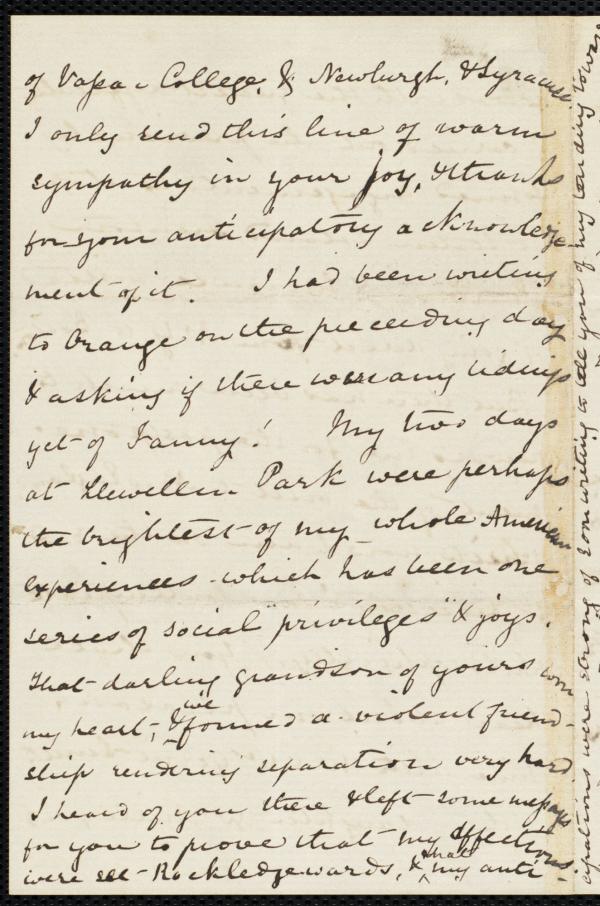 of Vassar College, & Newburgh, & Syracuse.
I only send this line of warm
sympathy in your joy, & thanks
for your anticipatory acknowledge-
ment of it. I had been writing
to Orange on the preceeding day
& asking if there were any tidings
yet of Fanny! My two days
at Llewellin Park were perhaps
the brightest of my whole American
experiences - which has been one
series of social "privileges" & joys.
That darling grandson of yours won
my heart, & we formed a violent friend-
ship rendering separation very hard
I heard of you there & left some messages
for you to prove that my affections
were Rockledgewards, & that my anti-
cipations were strong of soon writing to tell you of my tending towards